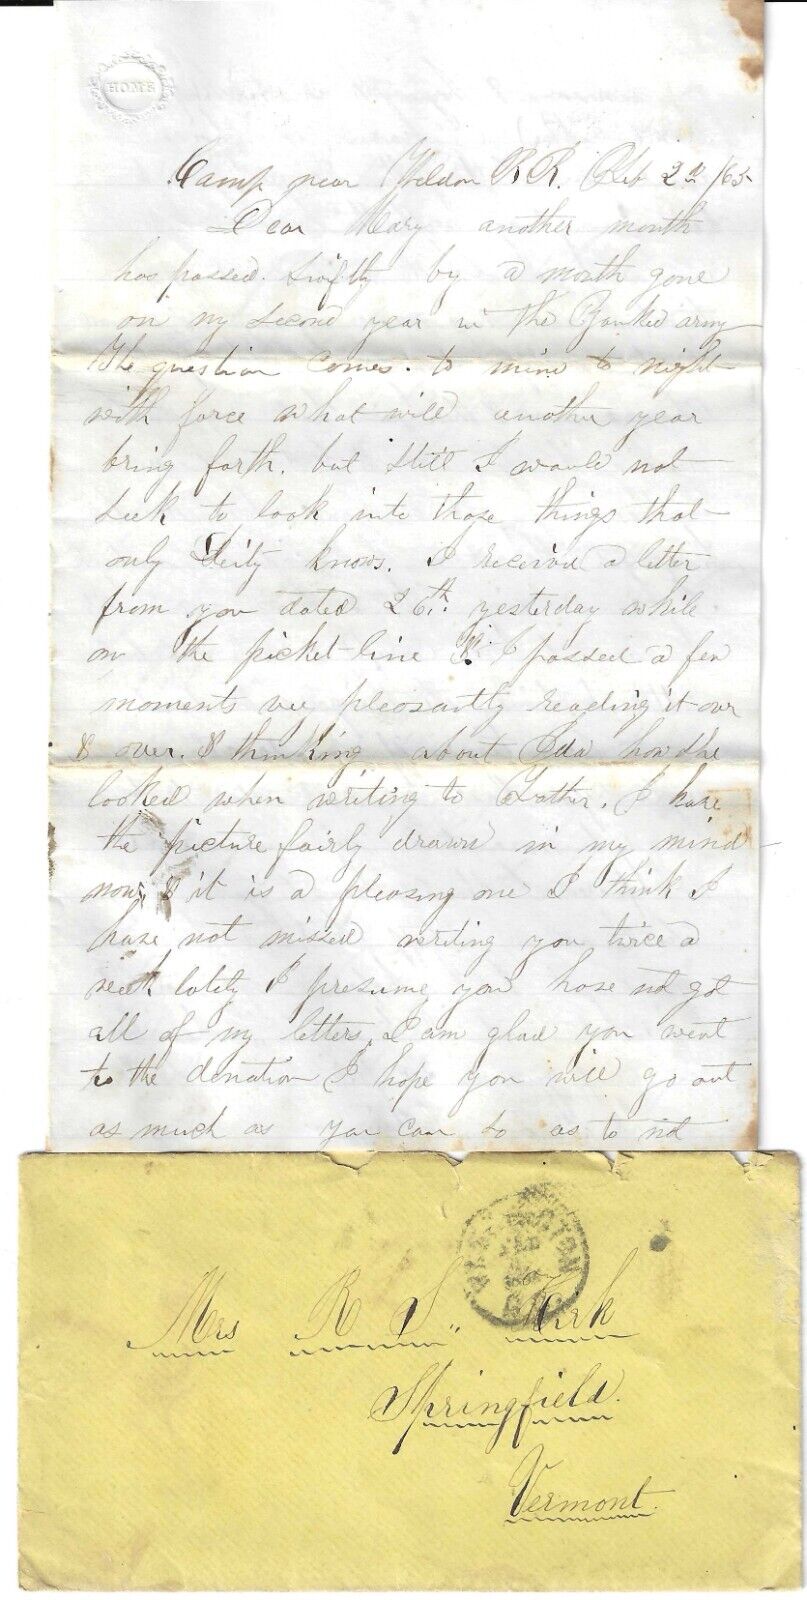 HOME
Camp near Weldon R R. Feb 2nd /65
Dear Mary another month
has passed. Swiftly by a month gone
on my second year in the Yankee army
The question comes. to mind to night
with force what will another year
bring forth. but still I would not
seek to look into those things that
only Deity knows. I received a letter
from you dated 26th. yesterday while
on the picket-line & I passed a few
moments very pleasantly reading it over
& over. & thinking about Ida how she
looked when writing to Father. I have
the picture fairly drawn in my mind
now, & it is a pleasing one I think I
have not missed writing you twice a
week lately I presume you have not got
all of my letters. I am glad you went
to the donation I hope you will go out
as much as you can so as to not
WASHINGTON
FEB
Mrs R S. Kirk
Springfield.
Vermont.